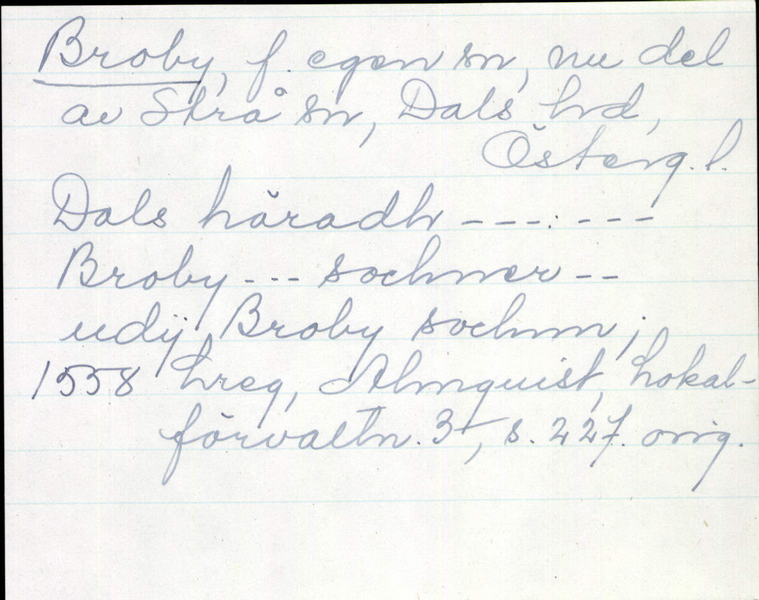 Broby, f. egen sn, nu del
av Strå sn, Dals hd,
Österg. l.
Dals häradh ---:---
Broby --- sochner --
udij Broby sochnn;
1558 hreg, Almquist, Lokal-
förvaltn. 3, s. 227. orig.